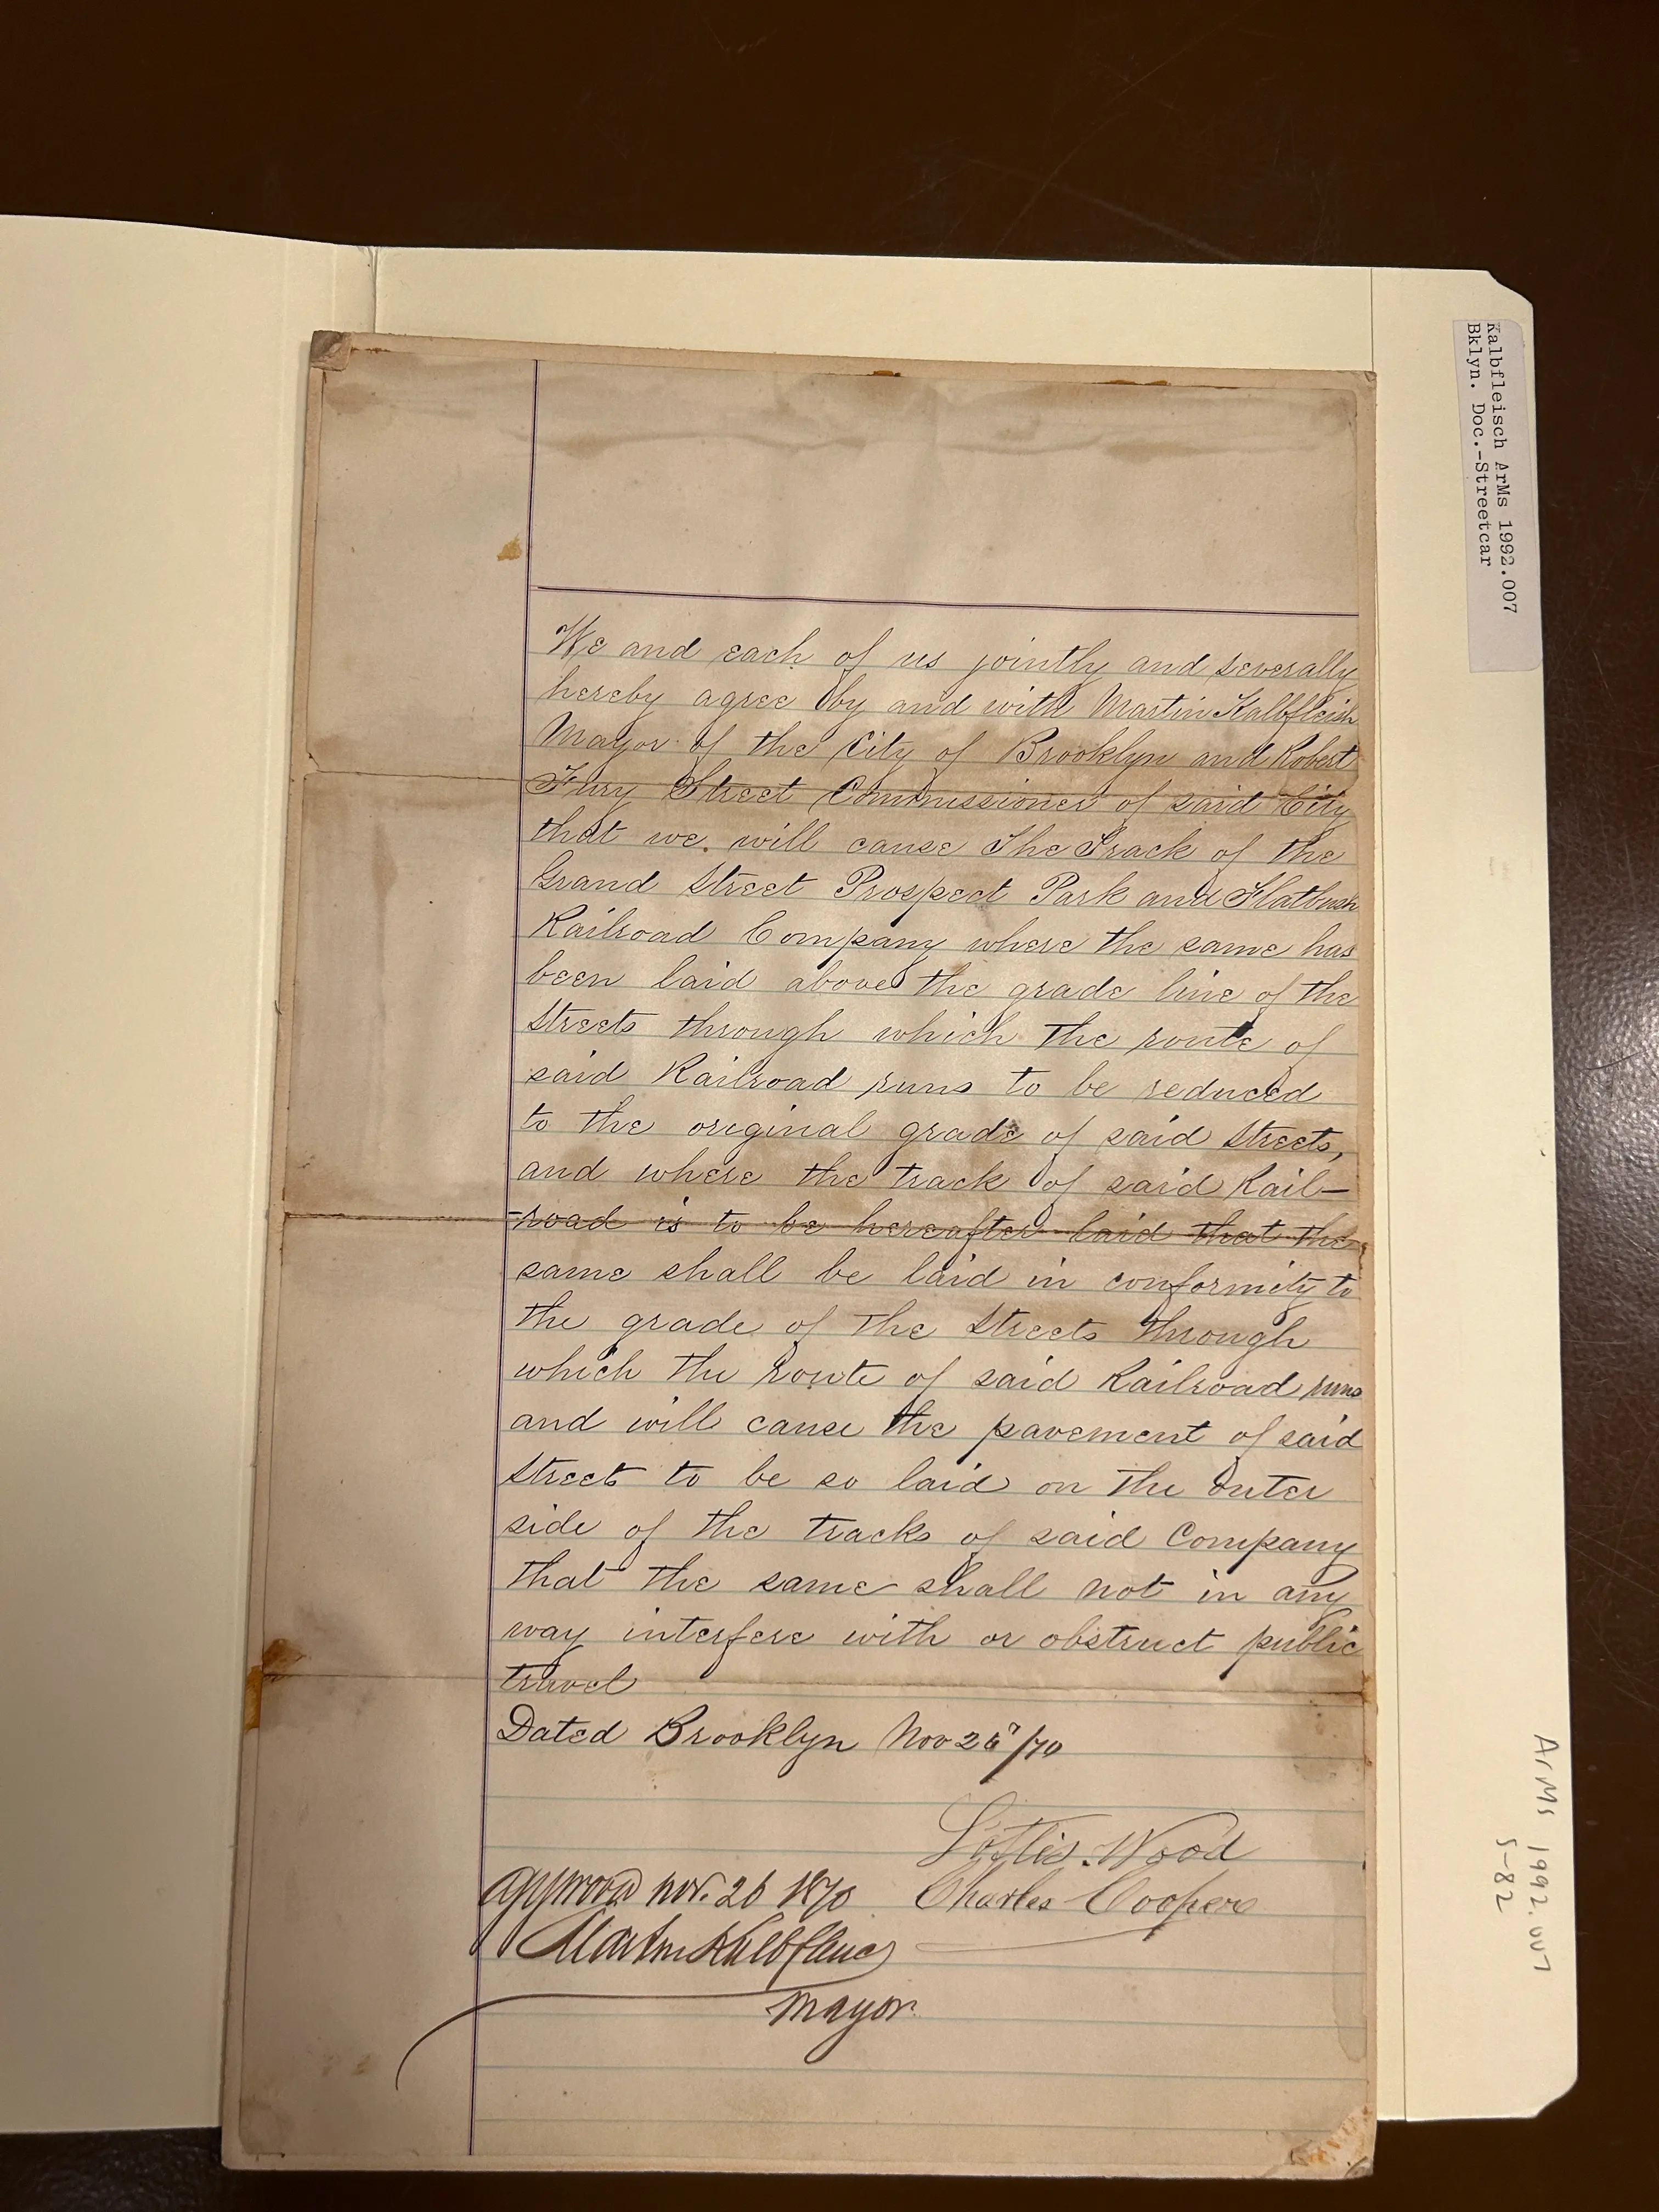 Kalbfleisch ArMs 1992.007
Bklyn. Doc.-Streetcar
We and each of us jointly and severally
hereby agree by and with Martin Kalbfleish
Mayor of the City of Brooklyn and Robert
Fury Street Commissioner of said City
that we will cause The Track of the
Grand Street Prospect Park and Flatbush
Railroad Company where the same has
been laid above the grade line of the
Streets through which the route of
said Railroad runs to be reduced
to the original grade of said Streets,
and where the track of said Rail-
-road is to be hereafter laid that the
same shall be laid in conformity to
the grade of the Streets through
which the route of said Railroad runs
and will cause the pavement of said
Streets to be so laid on the outer
side of the tracks of said Company
that the same shall not in any
way interfere with or obstruct public
travel
Dated Brooklyn Nov /70
Wood
approved nov. 26 1870 Charles Cooper
Martin Kalbfleisch
Mayor
ArMs 1992.007
5-82